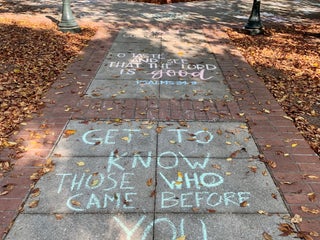 O TASTE
AND SEE
THAT THE LORD
IS good
PSALMS 34:8
GET TO
KNOW
THOSE WHO
CAME BEFORE
YOU